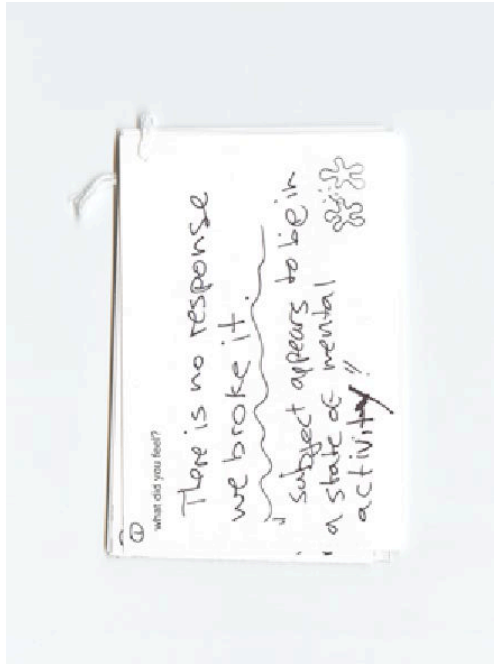 1
what did you feel?
There is no response
we broke it.
subject appears to be in
a state of mental
activity!!